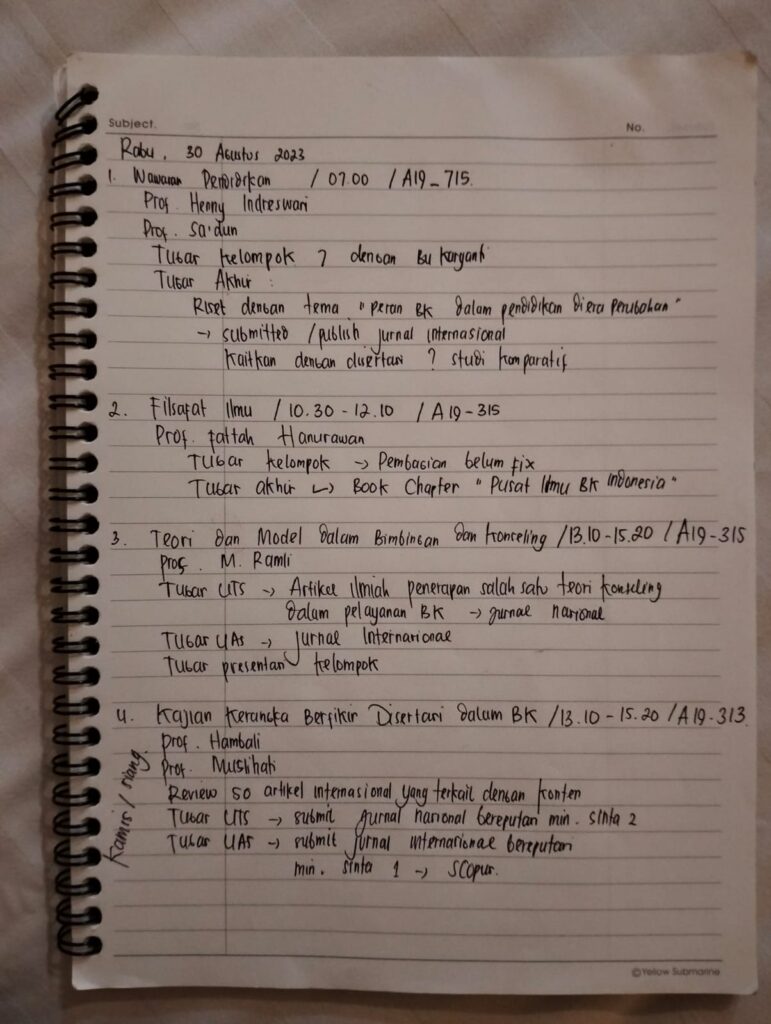 Subject.
No.
Rabu, 30 Agustus 2023
1. Wawasan Pendidikan / 07.00 / A19-715.
Prof. Henny Indreswari
Prof. Sa'dun
Tugas kelompok 7 dengan Bu Karyanti
Tugas Akhir :
Riset dengan tema "peran BK dalam pendidikan di era perubahan"
→ submitted / publish jurnal internasional
Kaitkan dengan disertasi ? studi komparatif
2. Filsafat Ilmu / 10.30 - 12.10 / A19-315
Prof. Fattah Hanurawan
Tugas kelompok → Pembagian belum fix
Tugas akhir ↳ Book Chapter "Pusat Ilmu BK Indonesia"
3. Teori dan Model dalam Bimbingan dan Konseling / 13.10 - 15.20 / A19-315
Prof. M. Ramli
Tugas UTS → Artikel ilmiah penerapan salah satu teori konseling
dalam pelayanan BK → jurnal nasional
Tugas UAS → Jurnal Internasional
Tugas presentasi kelompok
4. Kajian Kerangka Berfikir Disertasi dalam BK / 13.10 - 15.20 / A19-313
Prof. Hambali
Prof. Muslihati
Kamis / siang
Review 50 artikel internasional yang terkait dengan konten
Tugas UTS → submit jurnal nasional bereputasi min. sinta 2
Tugas UAS → submit jurnal internasional bereputasi
min. sinta 1 → Scopus.
©Yellow Submarine